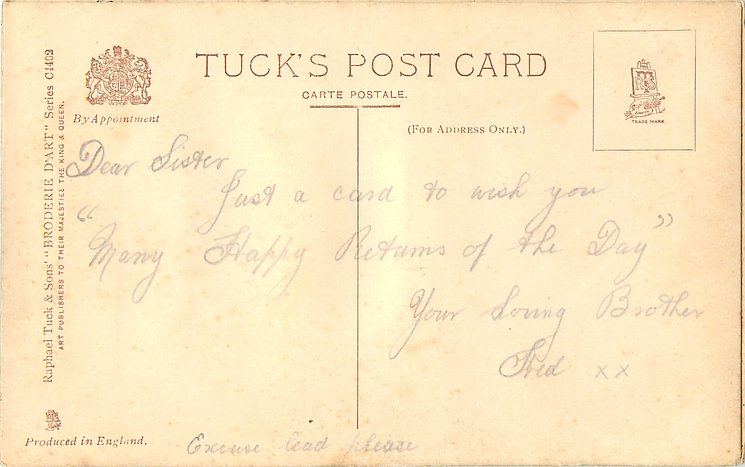 TUCK'S POST CARD
CARTE POSTALE.
By Appointment
(FOR ADDRESS ONLY.)
TRADE MARK
Raphael Tuck & Sons' "BRODERIE D'ART" Series C1402
ART PUBLISHERS TO THEIR MAJESTIES THE KING & QUEEN.
Dear Sister
Just a card to wish you
"Many Happy Returns of the Day"
Your Loving Brother
Fred xx
Excuse lead please
Produced in England.